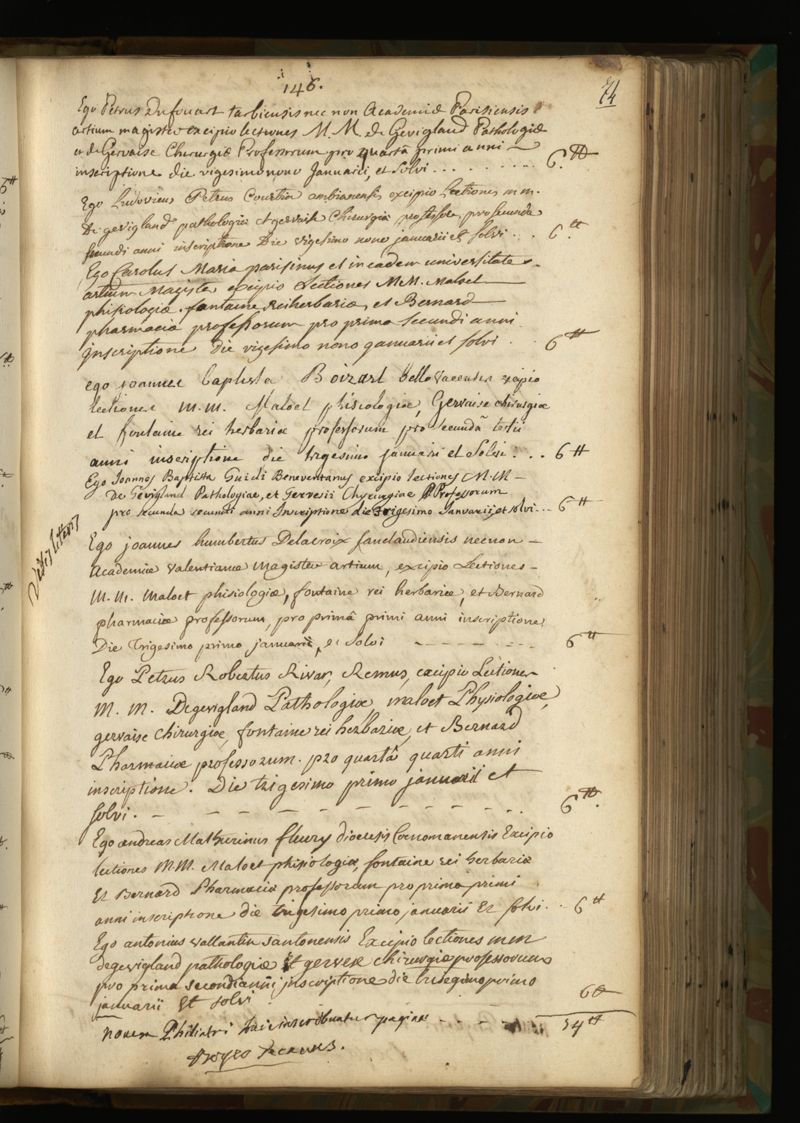 146.
74
Ego Petrus Dufouart tarbiensis nec non Academiæ Parisiensis
artium magister excipio lectiones M.M. de Gevigland Pathologiæ
et de Gervaise Chirurgiæ Professorum pro quartâ primi anni
inscriptione die vigesimo nono Januarii, et solvi . . . . . . . . 6.tt
Ego Ludovicus Petrus Courtin ambianensis excipio Lectiones mm.
De gevigland pathologiæ et gervaise Chirurgiæ pro secunda
secundi anni inscriptione Die vigesimo nono januarii et solvi . . 6.tt
Ego Carolus Maria parisinus et in eadem universitate
artium Magister excipio Lectiones M.M. Maloet
phisiologiæ, fontaine rei herbariæ, et Bernard
pharmaciæ professorum pro prima secundi anni
inscriptione die vigesimo nono januarii et solvi . 6tt
ego joannes baptista Boizart bellovacensis excipio
lectiones m.m. Maloet phisiologiæ, Gervaise chirurgiæ
et fontaine rei herbariæ professorum pro secundâ tertii
anni inscriptione die trigesimo januarii et solvi . . . 6tt
Ego Joannes Baptista Guidi Beneventanus excipio lectiones M.M.
De Gévigland Pathologiæ, et Gervesii Chyrurgiæ Professorum
pro secunda secundi anni Inscriptione die trigesimo Januarii, et solvi . . . 6tt
Ego joannes humbertus Delacroix sanclaudiensis necnon
Academiæ Valentianæ magister artium, excipio Lectiones
M.M. Maloet phisiologiæ, fontaine rei herbariæ, et Bernard
pharmaciæ professorum, pro primâ primi anni inscriptione,
Die Trigesimo primo januarii, et solvi - - - - - - 6tt
Ego Petrus Robertus Rivar, Remus, excipio Lectiones
M.M. Degevigland Pathologiæ, maloet Physiologiæ,
gervaise Chirurgiæ, fontaine rei herbariæ, et Bernard
Pharmaciæ professorum. pro quartâ quarti anni
inscriptione. Die trigesimo primo januarii et
solvi. - - - - - - - - - 6tt.
Ego andreas Mathurinus fleury dioecesis Cœnomanensis Excipio
lectiones M.M. Maloet phisiologiæ, fontaine rei herbariæ
Et Bernard Pharmaciæ professorum pro prima primi
anni inscriptione die trigesimo primo januarii Et solvi . . 6tt
Ego antonius vallantin santonensis Excipio lectiones mm
degevigland pathologiæ Et gervese chirurgiæ professorum
pro prima secondi anni inscriptione die tricegimo primo
januarii Et solvi 6tt
novem Philiatri hac inscribuntur pagina - - - 54tt
Decanus.